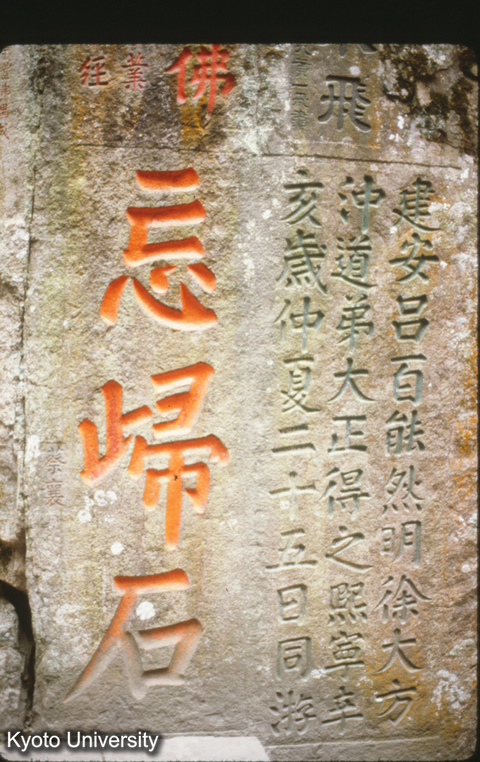 飛
建安呂百能然明徐大方
沖道弟大正得之熙寧辛
亥歳仲夏二十五日同游
佛
業
往
忘歸石
蔡襄
Kyoto University